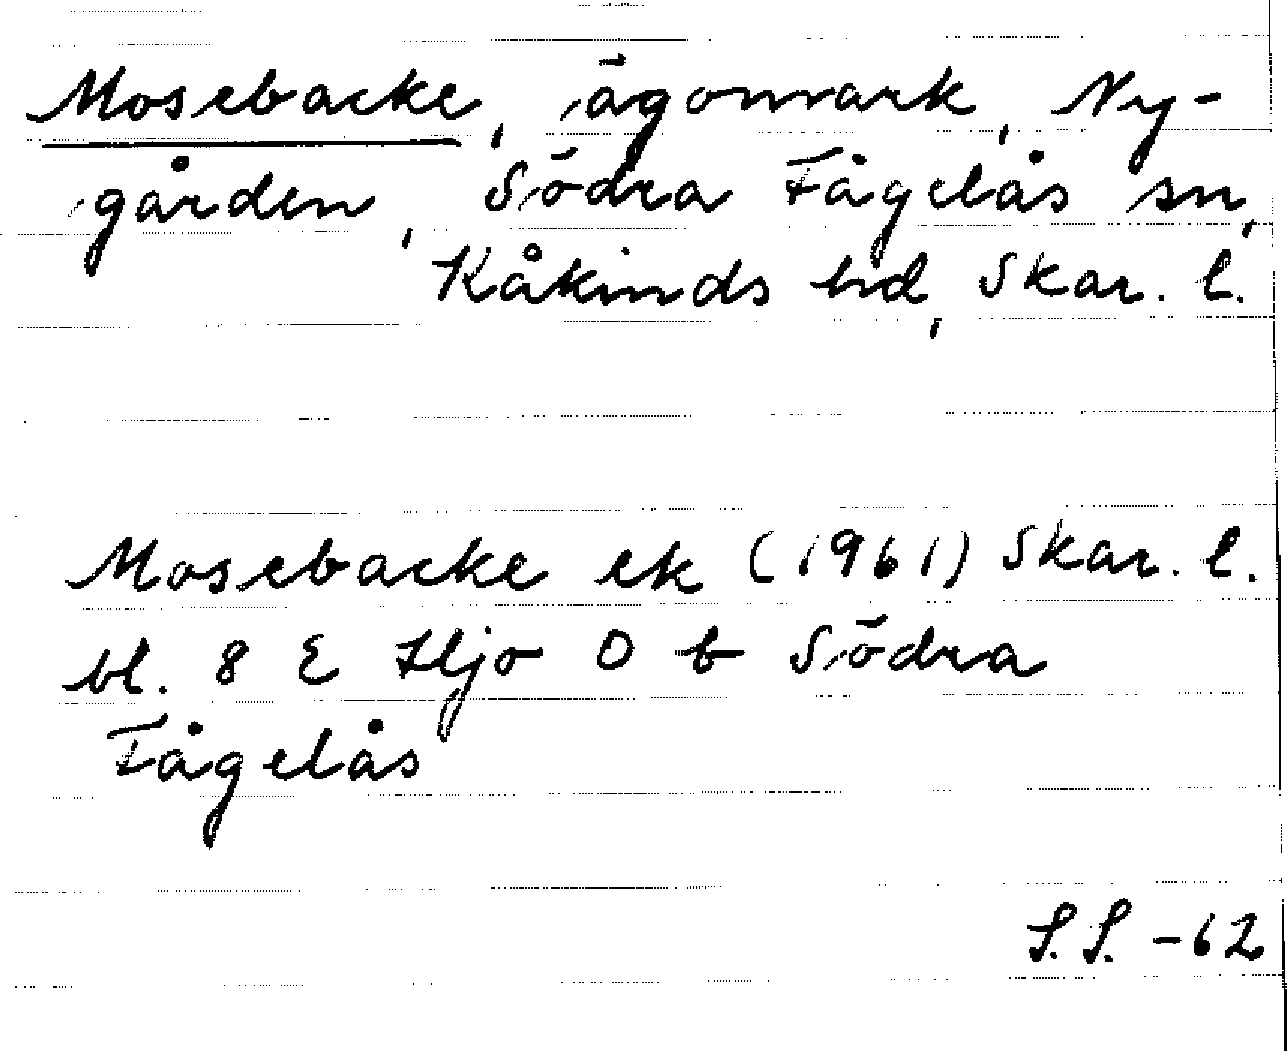 Mosebacke, ägomark, Ny-
gården, Södra Fågelås sn,
Kåkinds hd, Skar. l.
Mosebacke ek (1961) Skar. l.
bl. 8 E Hjo 0 b Södra
Fågelås
S.S. -62